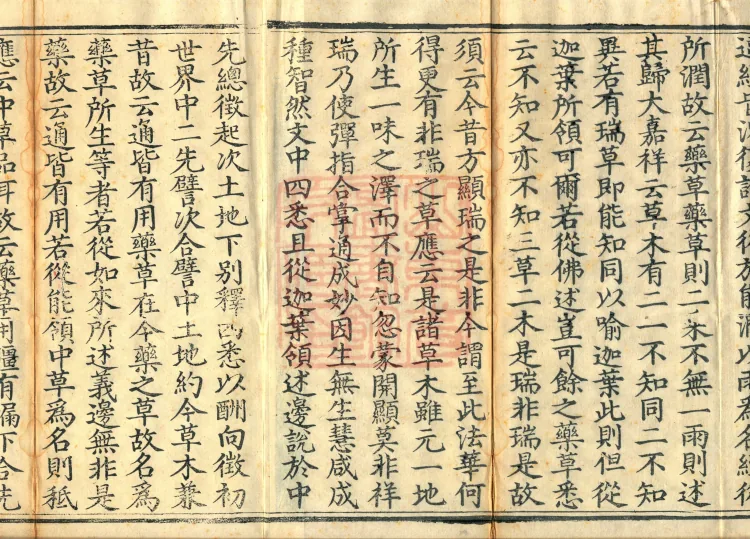 能潤以雨為名
所潤故云藥草藥草則二木不無一雨則述
其歸大嘉祥云草木有二一不知同二不知
異若有瑞草即能知同以喻迦葉此則但從
迦葉所領可爾若從佛述豈可餘之藥草悉
云不知又亦不知三草二木是瑞非瑞是故
須云今昔方顯瑞之是非今謂至此法華何
得更有非瑞之草應云是諸草木雖元一地
所生一味之澤而不自知忽蒙開顯莫非祥
瑞乃使彈指合掌通成妙因生無生慧咸成
種智然文中四悉且從迦葉領述邊說於中
先總徵起次土地下別釋四悉以酬向徵初
世界中二先譬次合譬中土地約今草木兼
昔故云通皆有用藥草在今藥之草故名為
藥草所生等者若從如來所述義邊無非是
藥故云通皆有用若從能領中草為名則秖
應云中草品耳故云藥草用彊有漏下合先